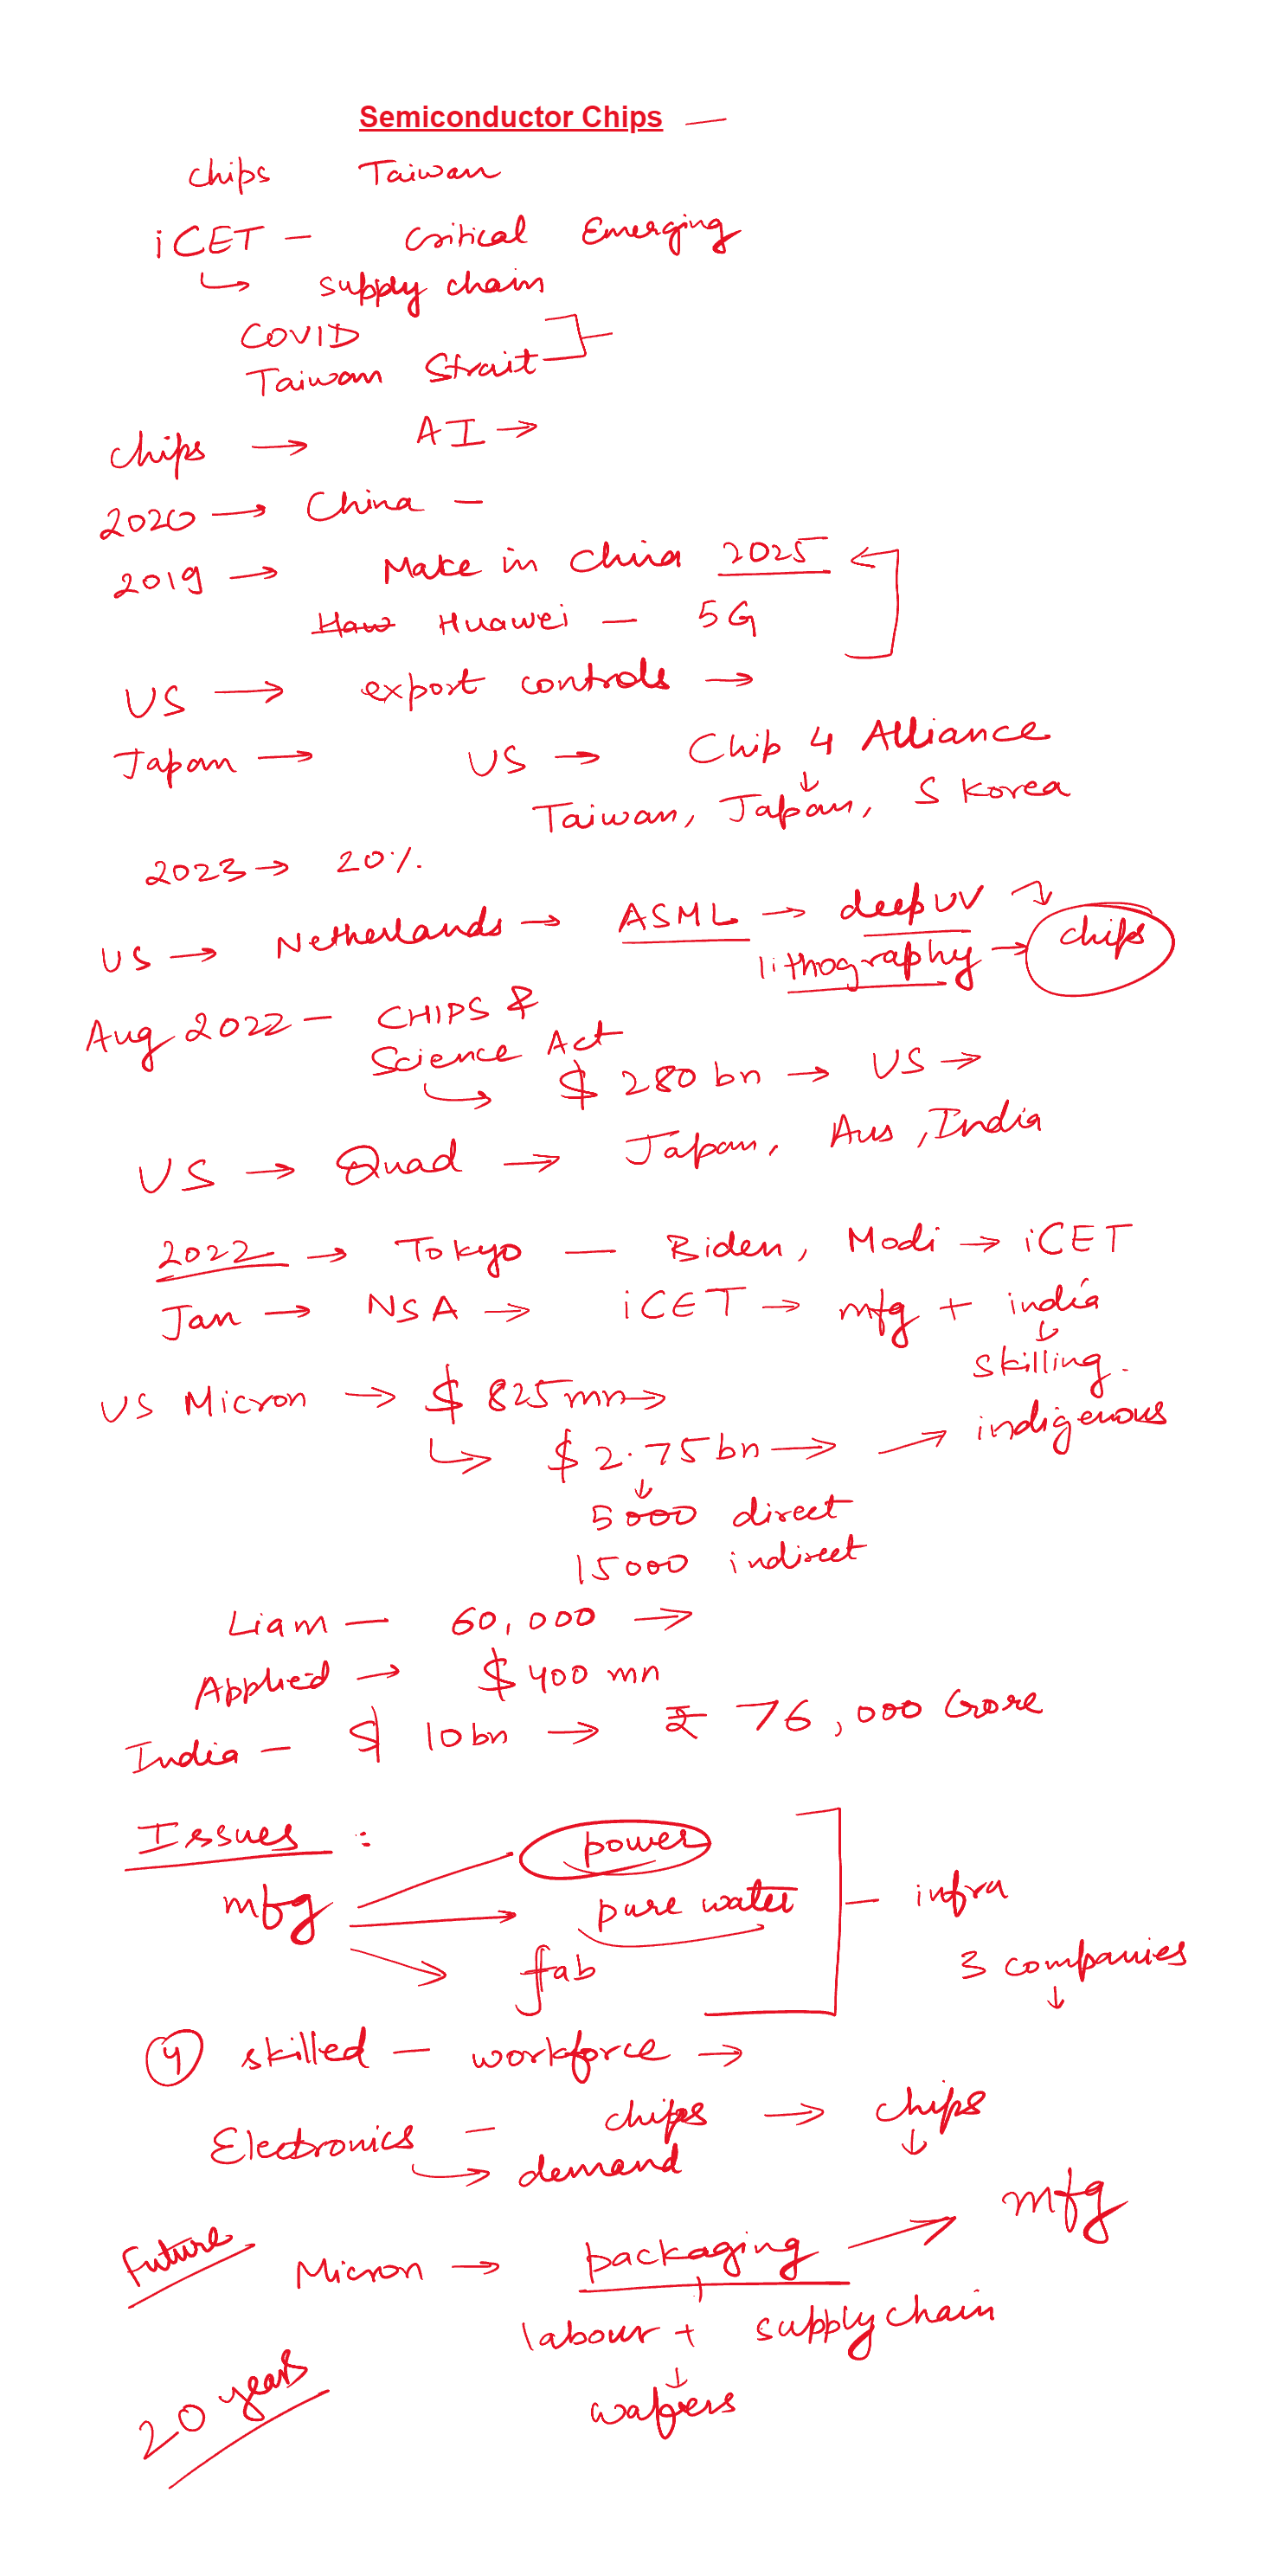 Semiconductor Chips —
chips Taiwan
iCET — Critical Emerging
↳ supply chain
COVID
Taiwan Strait
chips → AI →
2020 → China —
2019 → Make in China 2025
Haw Huawei — 5G
US → export controls →
Japan → US → Chip 4 Alliance
↓
Taiwan, Japan, S Korea
2023 → 20%.
US → Netherlands → ASML → deep UV
lithography → chips
Aug 2022 — CHIPS &
Science Act
↳ $ 280 bn → US →
US → Quad → Japan, Aus, India
2022 → Tokyo — Biden, Modi → iCET
Jan → NSA → iCET → mfg + india
↓
skilling.
US Micron → $ 825 mn →
↳ $ 2.75 bn → → indigenous
↓
5000 direct
15000 indirect
Liam — 60,000 →
Applied → $ 400 mn
India — $ 10 bn → ₹ 76,000 Crore
Issues :
power
mfg → pure water — infra
→ fab
3 companies
↓
4 skilled — workforce →
Electronics — chips → chips
↓
↳ demand
mfg
Future Micron → packaging →
labour + supply chain
↓
wafers
20 years